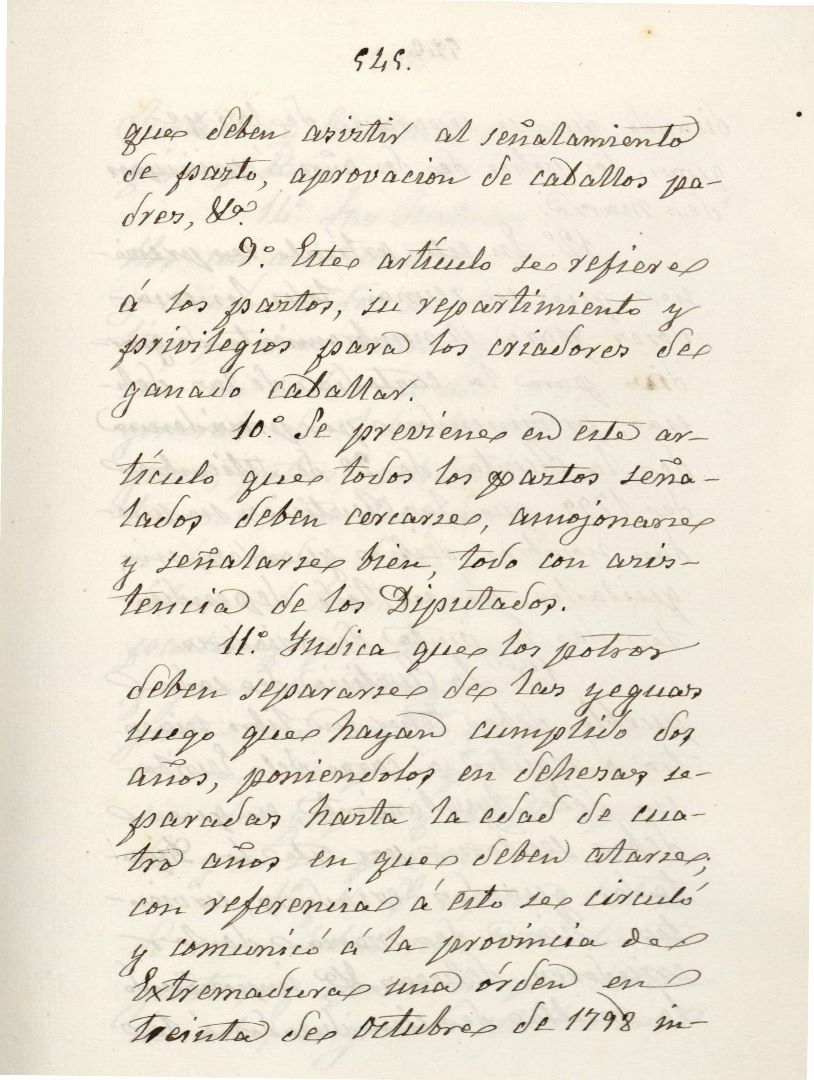 545.
que deben asistir al señalamiento
de pasto, aprovacion de caballos pa-
dres, &ª.
9.º Este artículo se refiere
á los pastos, su repartimiento y
privilegios para los criadores de
ganado caballar.
10.º Se previene en este ar-
tículo que todos los pastos seña-
lados deben cercarse, amojonarse
y señalarse bien, todo con asis-
tencia de los Diputados.
11.º Indica que los potros
deben separarse de las yeguas
luego que hayan cumplido dos
años, poniendolos en dehesas se-
paradas hasta la edad de cua-
tro años en que deben atarse;
con referencia á esto se circuló
y comunicó á la provincia de
Extremadura una órden en
treinta de Octubre de 1798 in-